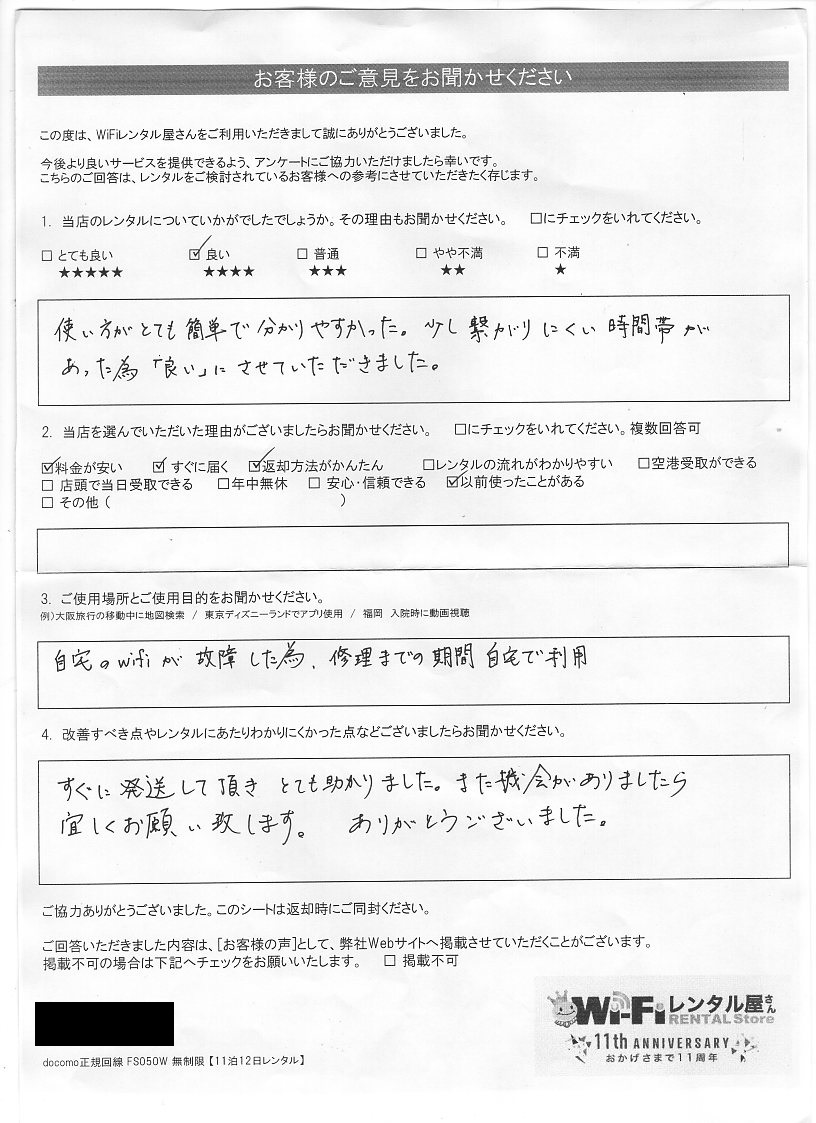 お客様のご意見をお聞かせください
この度は、WiFiレンタル屋さんをご利用いただきまして誠にありがとうございました。
今後より良いサービスを提供できるよう、アンケートにご協力いただけましたら幸いです。
こちらのご回答は、レンタルをご検討されているお客様への参考にさせていただきたく存じます。
1. 当店のレンタルについていかがでしたでしょうか。その理由もお聞かせください。 □にチェックをいれてください。
□ とても良い ☑ 良い □ 普通 □ やや不満 □ 不満
★★★★★ ★★★★ ★★★ ★★ ★
使い方がとても簡単で分かりやすかった。少し繋がりにくい時間帯が
あった為「良い」にさせていただきました。
2. 当店を選んでいただいた理由がございましたらお聞かせください。 □にチェックをいれてください。複数回答可
☑料金が安い ☑ すぐに届く ☑返却方法がかんたん □レンタルの流れがわかりやすい □空港受取ができる
□ 店頭で当日受取できる □年中無休 □ 安心・信頼できる ☑以前使ったことがある
□ その他 ( )
3. ご使用場所とご使用目的をお聞かせください。
例)大阪旅行の移動中に地図検索 / 東京ディズニーランドでアプリ使用 / 福岡 入院時に動画視聴
自宅のwifiが故障した為、修理までの期間自宅で利用
4. 改善すべき点やレンタルにあたりわかりにくかった点などございましたらお聞かせください。
すぐに発送して頂きとても助かりました。また機会がありましたら
宜しくお願い致します。 ありがとうございました。
ご協力ありがとうございました。このシートは返却時にご同封ください。
ご回答いただきました内容は、[お客様の声]として、弊社Webサイトへ掲載させていただくことがございます。
掲載不可の場合は下記へチェックをお願いいたします。 □ 掲載不可
Wi-Fiレンタル屋さん
RENTAL Store
11th ANNIVERSARY
おかげさまで11周年
docomo正規回線 FS050W 無制限【11泊12日レンタル】